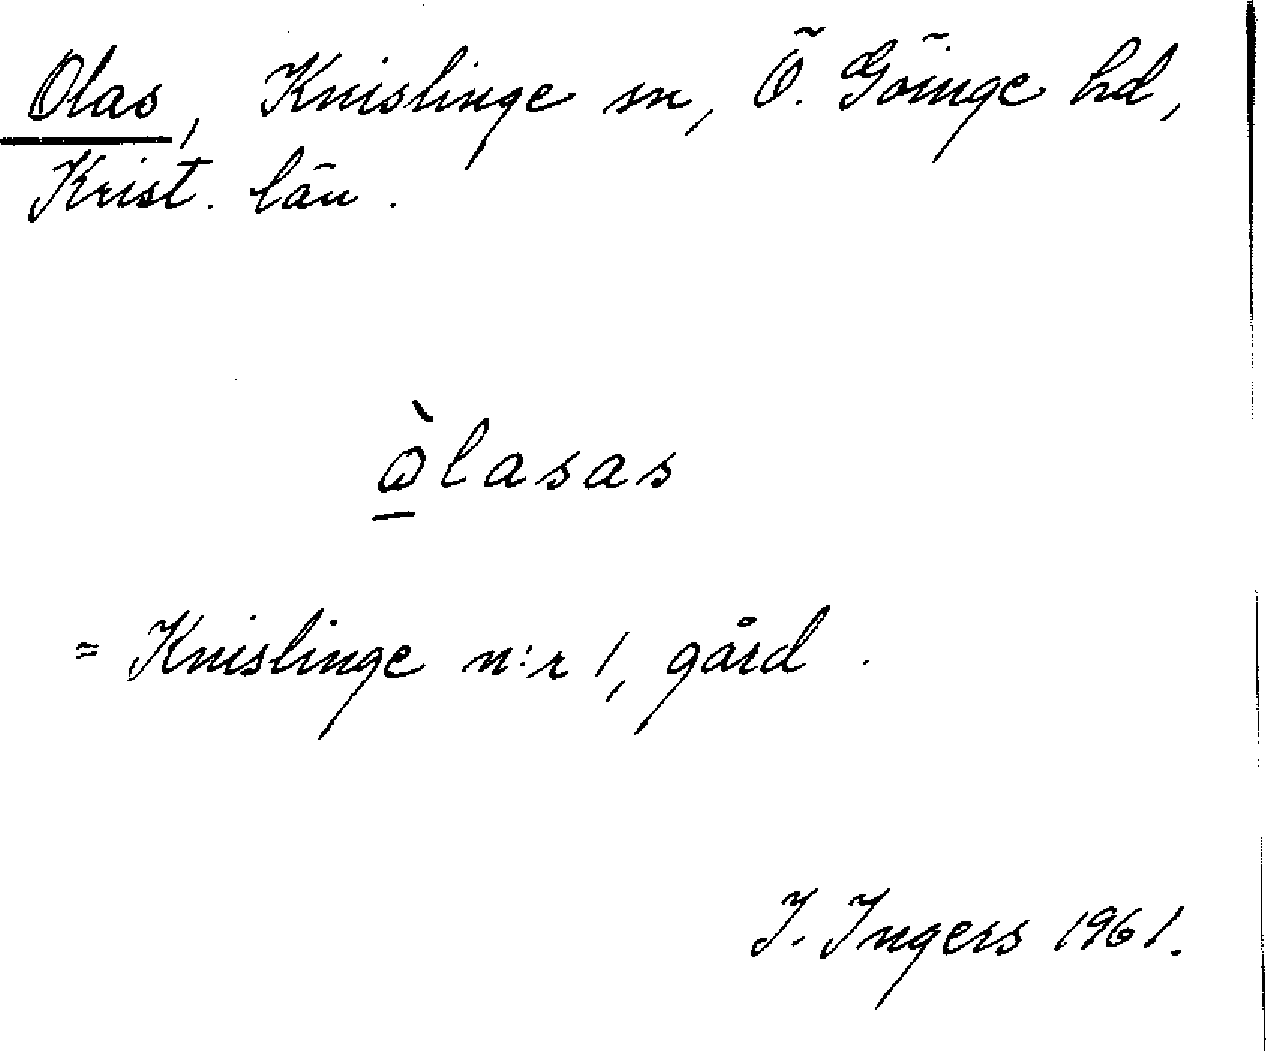 Olas, Knislinge sn, Ö. Göinge hd,
Krist. län.
òlasas
= Knislinge n:r 1, gård.
I. Ingers 1961.